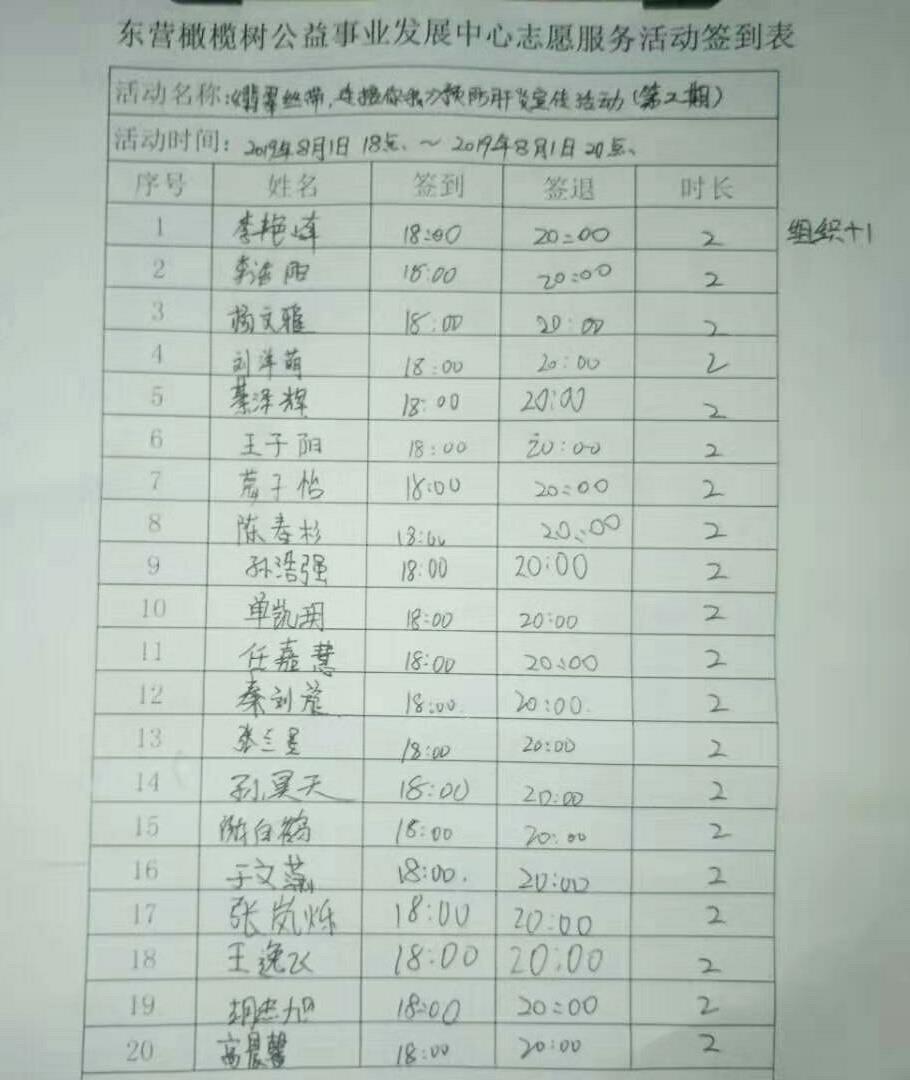 东营橄榄树公益事业发展中心志愿服务活动签到表
活动名称:"翡翠丝带,连接你我"预防肝炎宣传活动(第二期)
活动时间:2019年8月1日 18点.~2019年8月1日 20点.
序号 姓名 签到 签退 时长
1 李艳峰 18:00 20:00 2 组织+1
2 阳 18:00 20:00 2
3 杨文雅 18:00 20:00 2
4 刘洋萌 18:00 20:00 2
5 綦泽辉 18:00 20:00 2
6 王子阳 18:00 20:00 2
7 子怡 18:00 20:00 2
8 陈春杉 18:00 20:00 2
9 孙浩强 18:00 20:00 2
10 单凯玥 18:00 20:00 2
11 任嘉慧 18:00 20:00 2
12 秦刘 18:00 20:00 2
13 张兰昱 18:00 20:00 2
14 孙昊天 18:00 20:00 2
15 陈白鹤 18:00 20:00 2
16 于文 18:00. 20:00 2
17 张岚烁 18:00 20:00 2
18 王逸飞 18:00 20:00 2
19 胡杰旭 18:00 20:00 2
20 高晨馨 18:00 20:00 2